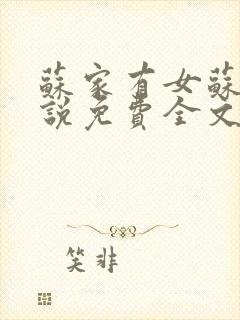 蘇家有女蘇
說免費全文
笑非